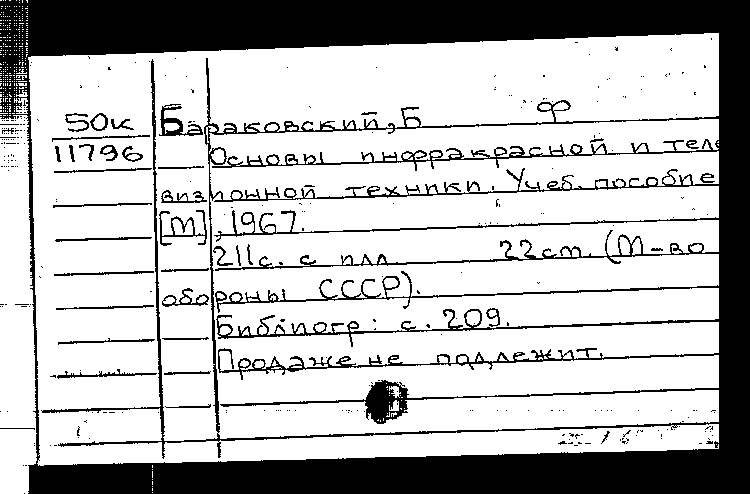 50к Бараковский, Б ф
11796 Основы инфракрасной и теле
визионной техники. Учеб. пособие
[М], 1967.
211с. с илл. 22см. (М-во
обороны СССР).
Библиогр: с. 209.
Продаже не подлежит.